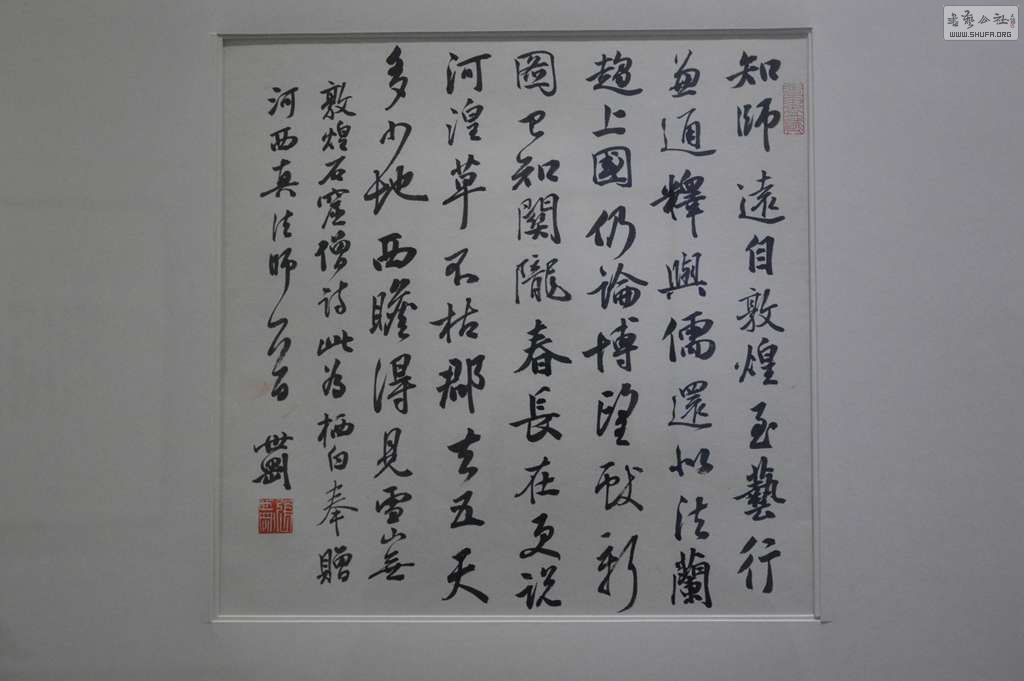 知師遠自敦煌至藝行
兼通釋與儒還似法蘭
趨上國仍論博望獻新
圖已知關隴春長在更說
河湟草不枯郡去五天
多少地西瞻得見雪山無
敦煌石窟僧詩此為栖白奉贈
河西真法師
世剛
書藝公社
WWW.SHUFA.ORG